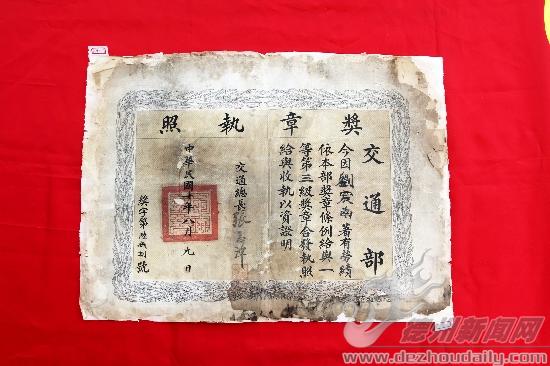 獎章執照
交通部
今因劉震南著有勞績
依本部獎章條例給與一
等第三級獎章合發執照
給與收執以資證明
交通總長張志潭
中華民國十年八月九日
獎字第 號
德州新闻网
www.dezhoudaily.com